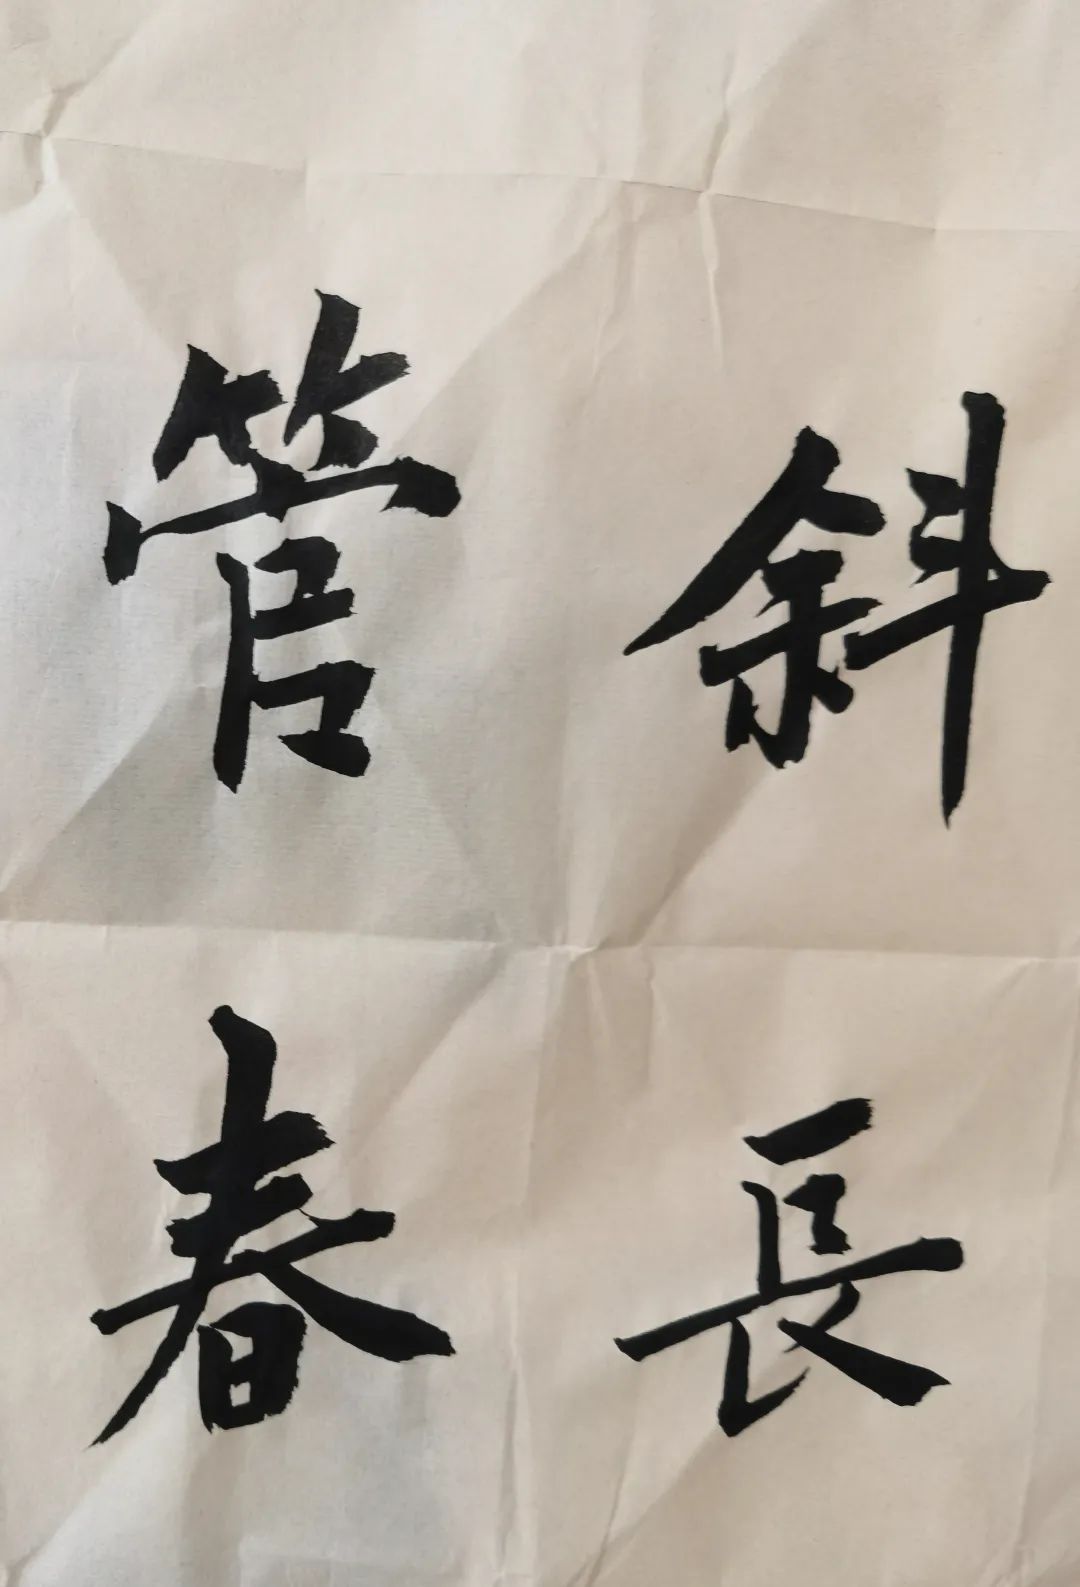 斜長
管春